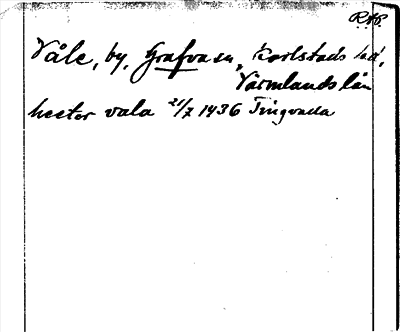 RAP.
Våle, by, Grafva sn, Karlstads hd,
Värmlands län
hester vala 21/7 1436 Tingvalla